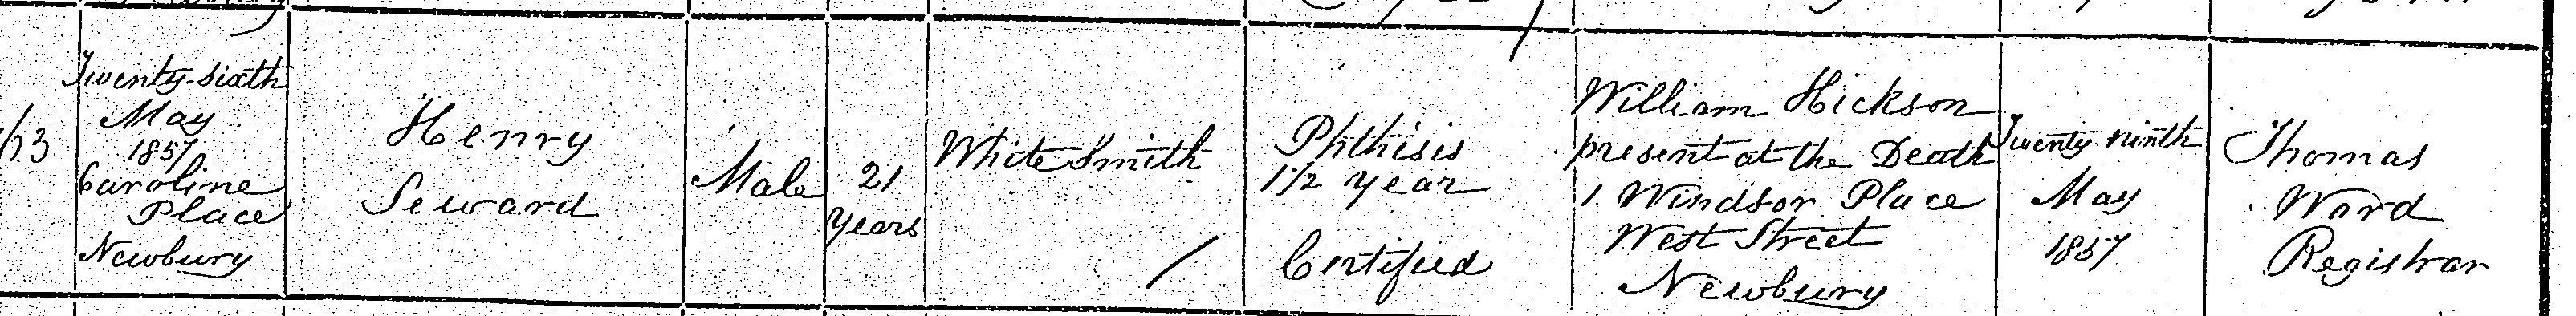 Twenty-sixth
May
1857
Caroline
Place
Newbury
Henry
Seward
Male
21
Years
White Smith
Phthisis
1 1/2 year
Certified
William Hickson
present at the Death
1 Windsor Place
West Street
Newbury
Twenty ninth
May
1857
Thomas
Ward
Registrar